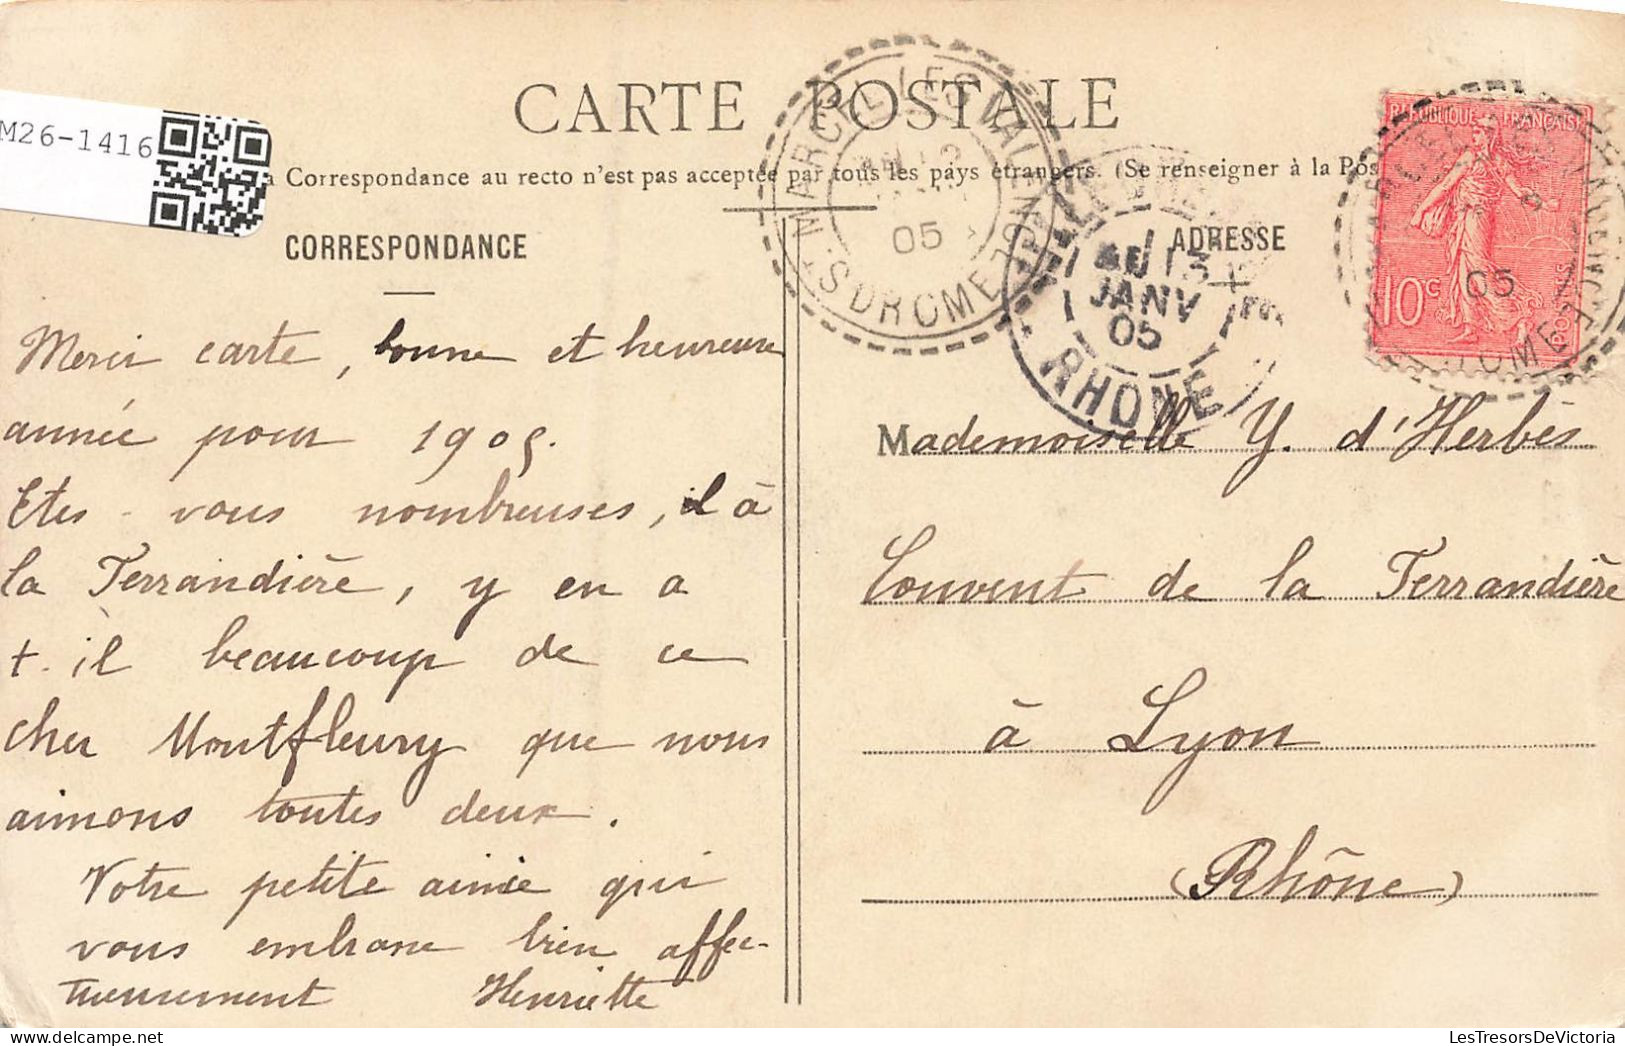 CARTE POSTALE
M26-1416
a Correspondance au recto n'est pas acceptée par tous les pays étrangers. (Se renseigner à la Pos
CORRESPONDANCE
Merci carte, bonne et heureuse
année pour 1905.
Etes-vous nombreuses, à
la Terrandière, y en a
t-il beaucoup de ce
cher Montfleury que nous
aimons toutes deux.
Votre petite amie qui
vous embrasse bien affec-
tueusement Henriette
MARCEL-LES-VALENCE
12
05
DROME
13
JANV
05
RHONE
REPUBLIQUE FRANÇAISE
10c
POSTES
05
DROME
ADRESSE
Mademoiselle Y. d'Herbès
Couvent de la Terrandière
à Lyon
(Rhône)
LesTresorsDeVictoria